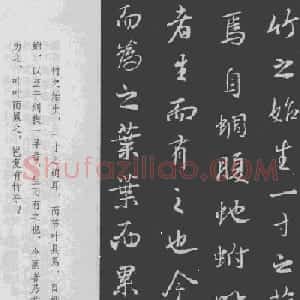 竹之始生一寸之
焉自蜩腹蛇蚹
者生而有之也今
而為之葉葉而累
竹之始生,一寸之萌耳,而节叶具焉。自蜩
蚹,以至于剑拔十寻者,生而有之也。今画者乃
为之,叶叶而累之,岂复有竹乎?
Shufaziliao.com